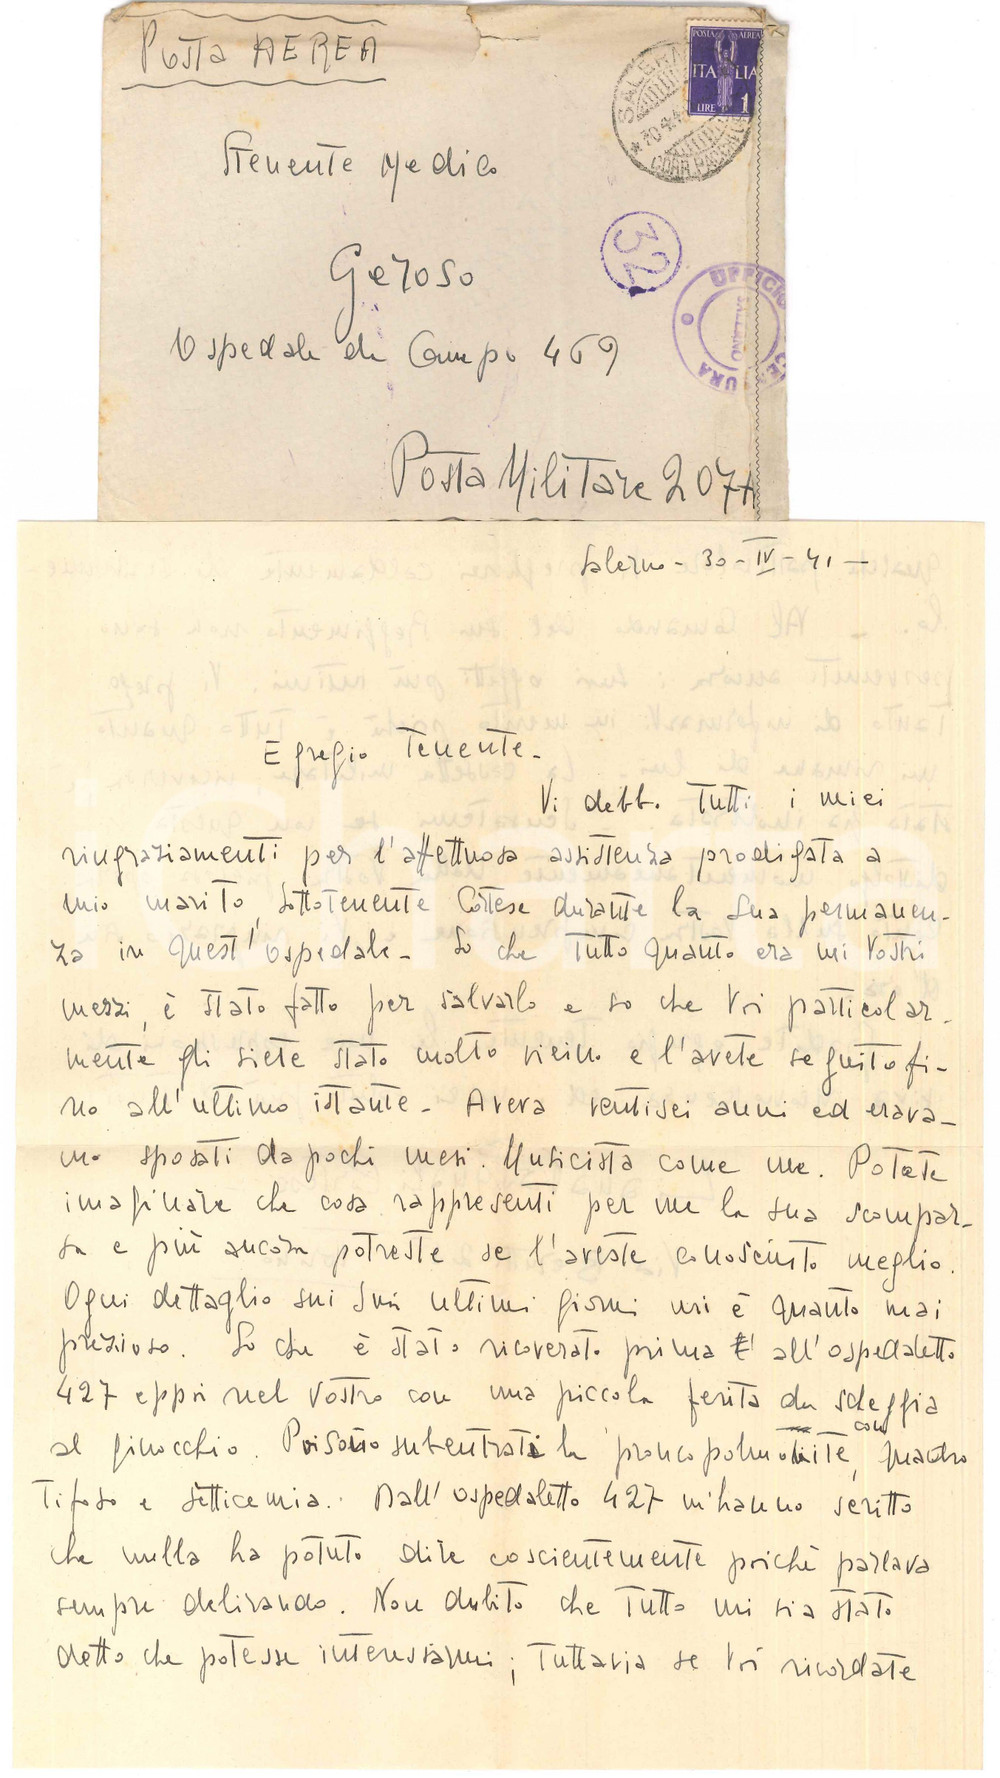 Posta AEREA
POSTA AEREA
ITALIA
LIRE 1
Stenente Medico
32
Geroso
UFFICIO
CENSURA
Ospedale da Campo 469
Posta Militare 207A
Salerno - 30 - IV - 41 -
Egregio Tenente -
Vi debbo tutti i miei
ringraziamenti per l'affettuosa assistenza prodigata a
mio marito, sottotenente Cortese durante la sua permanen-
za in quest'ospedale - So che tutto quanto era nei vostri
mezzi, è stato fatto per salvarlo e so che Voi particolar-
mente gli siete stato molto vicino e l'avete seguito fi-
no all'ultimo istante - Aveva ventisei anni ed erava-
mo sposati da pochi mesi. Musicista come me. Potete
imaginare che cosa rappresenti per me la sua scompar-
sa e più ancora potreste se l'aveste conosciuto meglio.
Ogni dettaglio sui suoi ultimi giorni mi è quanto mai
prezioso. So che è stato ricoverato prima all'ospedaletto
427 e poi nel vostro con una piccola ferita da scheggia
al ginocchio. Poi sono subentrati la broncopolmonite, con quadro
tifoso e setticemia. Dall'ospedaletto 427 m'hanno scritto
che nulla ha potuto dire coscientemente poichè parlava
sempre delirando. Non dubito che tutto mi sia stato
detto che potesse interessarmi; tuttavia se Voi ricordate